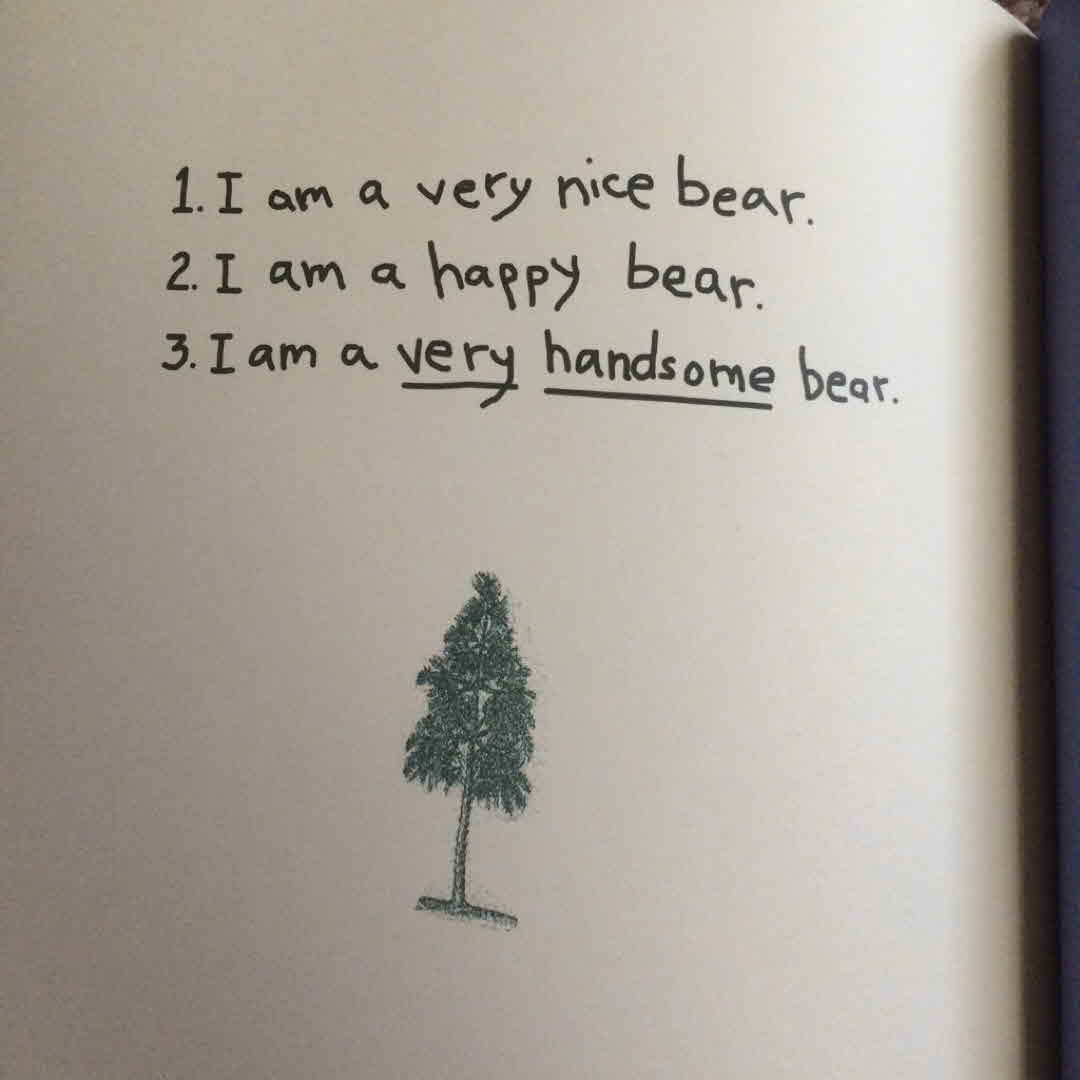 1. I am a very nice bear.
2. I am a happy bear.
3. I am a very handsome bear.